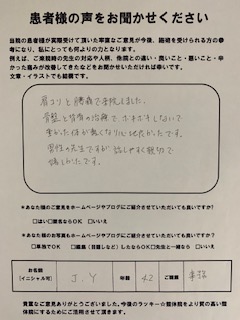 患者様の声をお聞かせください
当院の患者様が実際受けて頂いた率直なご意見が今後、施術を受けられる方の参
考になり、私にとっても何よりの力となります。
例えば、ご来院時の先生の対応や人柄、他院との違い・良いこと・悪いこと・辛
かった痛みが改善してきたなどをお聞かせいただければ幸いです。
文章・イラストでも結構です。
肩コリと腰痛で来院しました。
骨盤と背骨の治療で、ボキボキしないで
重かった体が軽くなりい 地良かったです。
男性の先生ですが 話しやすく親切で
嬉しかったです。
*あなた様のご意見をホームページやブログにご紹介させていただいても良いですか?
□はい□匿名ならOK □いいえ
*あなた様のお写真もホームページやブログにご紹介させていただいても良いですか?
□単独でOK □編集(目隠しなど)したならOK□先生と一緒なら □いいえ
お名前
(イニシャル可) J.Y 年齢 42 ご職業
貴重なご意見ありがとうございました。今後のラッキー☆整体院をより質の高い整
体院にするためにご活用させて頂きます。